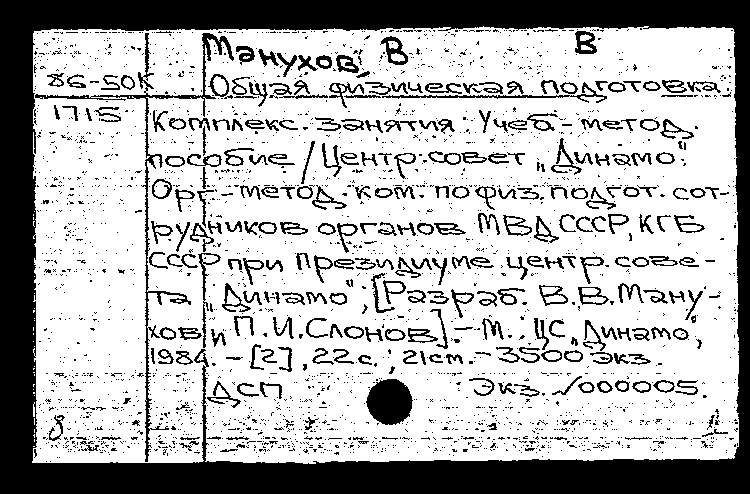 Манухов, В В
86-50К Общая физическая подготовка
1715 Комплекс. занятия: Учеб-метод.
пособие / Центр. совет „Динамо".
Орг-метод. ком. по физ. подгот. сот-
рудников органов МВД СССР, КГБ
СССР при Президиуме центр. сове-
та „Динамо"; [Разраб. В.В. Ману-
хов и П.И. Слонов]. - М.: ЦС „Динамо",
1984. - [2], 22 с.; 21 см. - 3500 экз.
ДСП Экз. √000005.
8